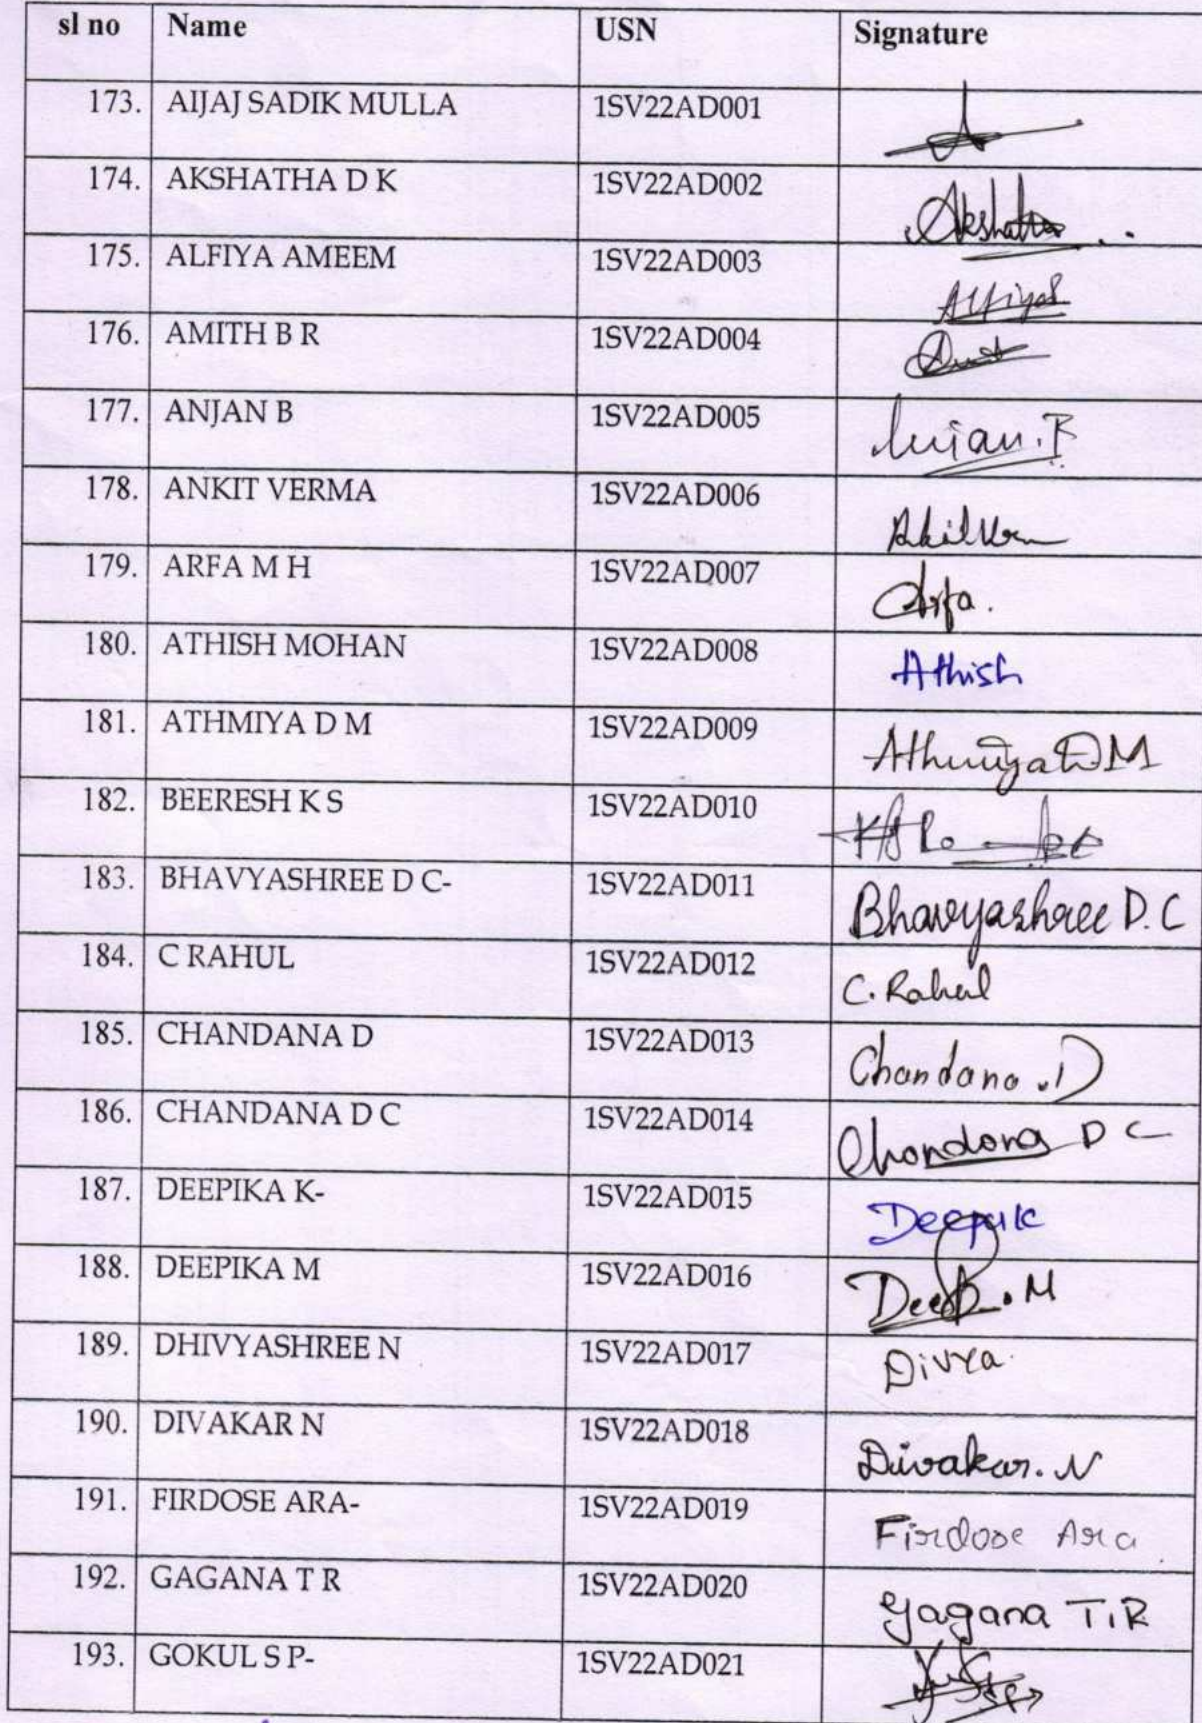 sl no Name USN Signature
173. AIJAJ SADIK MULLA 1SV22AD001
174. AKSHATHA D K 1SV22AD002 Akshatha
175. ALFIYA AMEEM 1SV22AD003 Alfiya
176. AMITH B R 1SV22AD004
177. ANJAN B 1SV22AD005 Anjan.B
178. ANKIT VERMA 1SV22AD006
179. ARFA M H 1SV22AD007 Arfa.
180. ATHISH MOHAN 1SV22AD008 Athish
181. ATHMIYA D M 1SV22AD009 Athmiya D M
182. BEERESH K S 1SV22AD010
183. BHAVYASHREE D C- 1SV22AD011 Bhavyashree D.C
184. C RAHUL 1SV22AD012 C.Rahul
185. CHANDANA D 1SV22AD013 Chandana .D
186. CHANDANA D C 1SV22AD014 Chandana D C
187. DEEPIKA K- 1SV22AD015
188. DEEPIKA M 1SV22AD016
189. DHIVYASHREE N 1SV22AD017 Divya.
190. DIVAKAR N 1SV22AD018 Divakar. N
191. FIRDOSE ARA- 1SV22AD019 Firdose Ara
192. GAGANA T R 1SV22AD020 Gagana T.R
193. GOKUL S P- 1SV22AD021